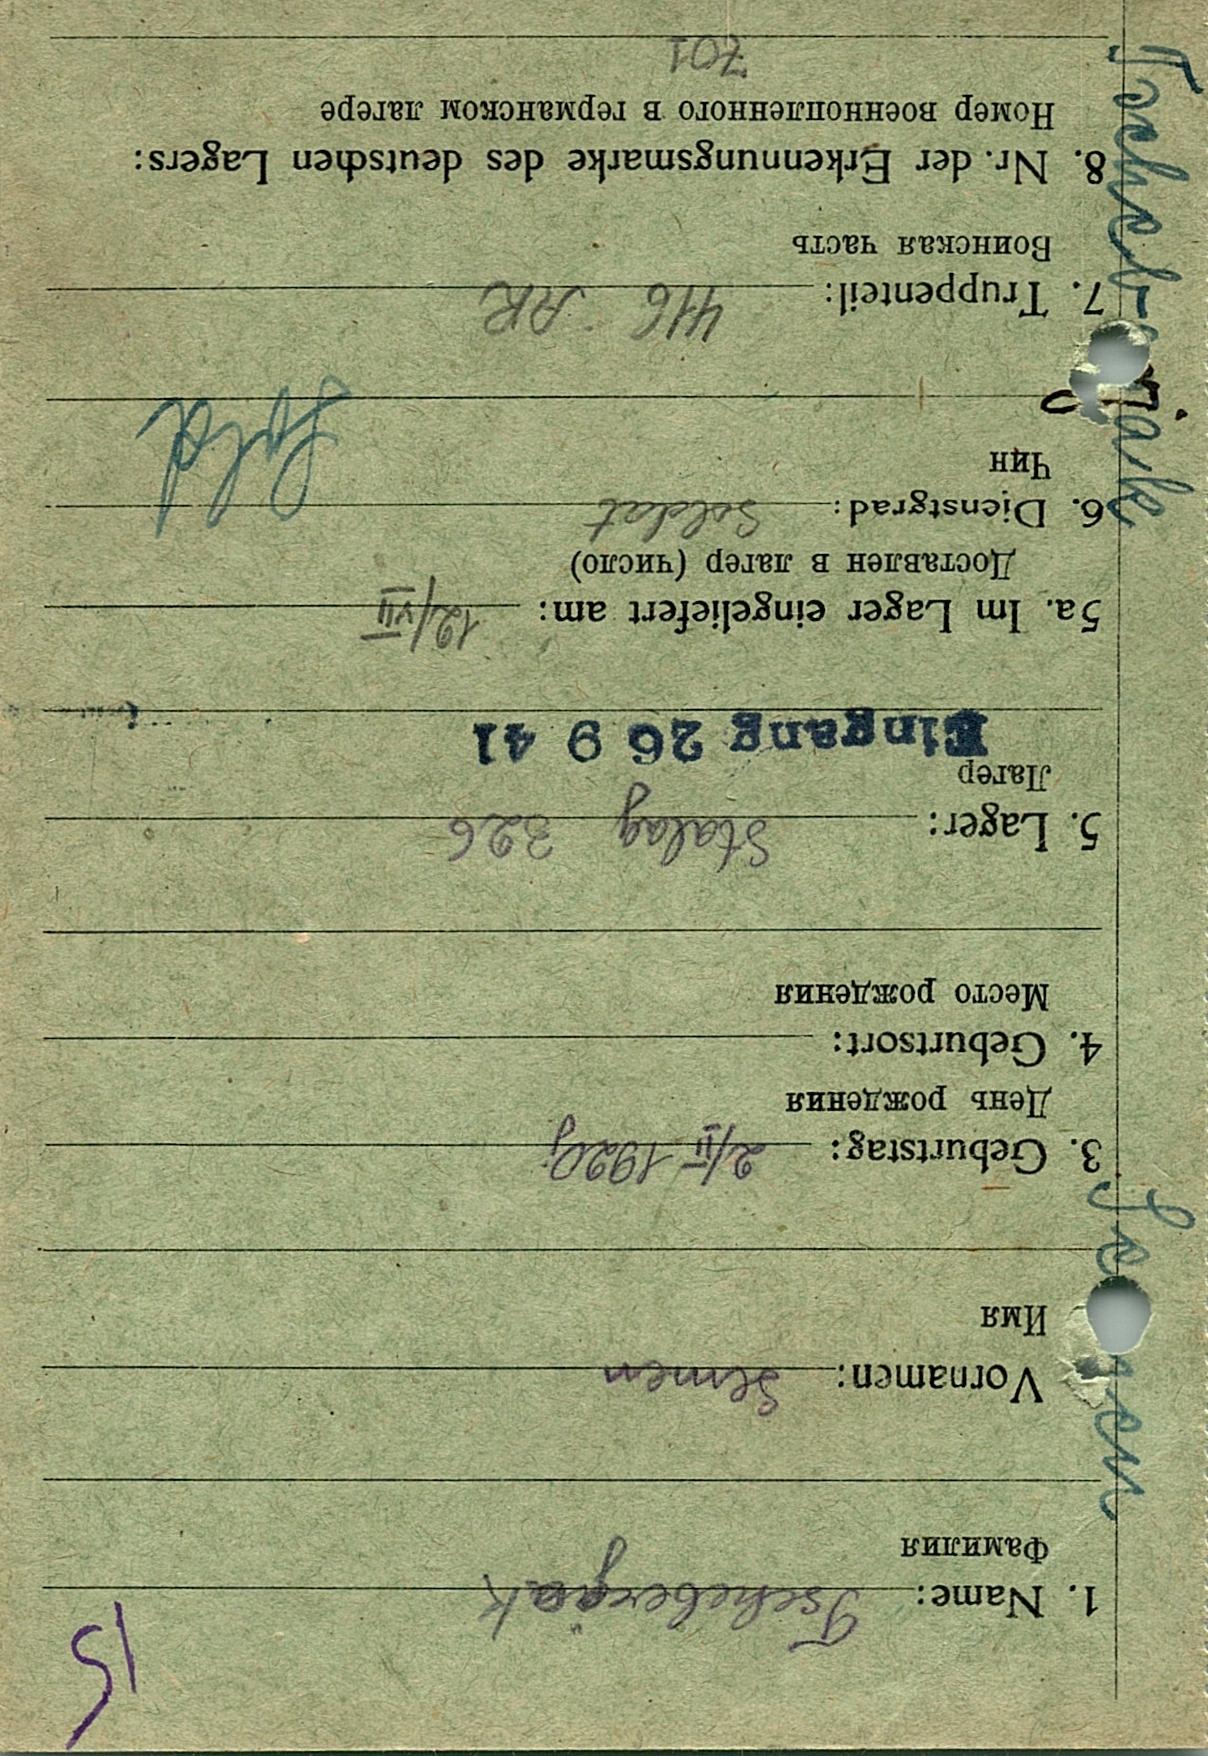 15
1. Name: Tscheberjak
Фамилия
Vornamen: Semen
Имя
3. Geburtstag: 2/II 1920j
День рождения
4. Geburtsort:
Место рождения
5. Lager: Stalag 326
Лагер
Eingang 26 9 41
5a. Im Lager eingeliefert am: 12/VII
Доставлен в лагер (число)
6. Dienstgrad: Soldat
Чин
Sold
7. Truppenteil: 416 AR
Воинская часть
8. Nr. der Erkennungsmarke des deutschen Lagers:
Номер военнопленного в германском лагере
701